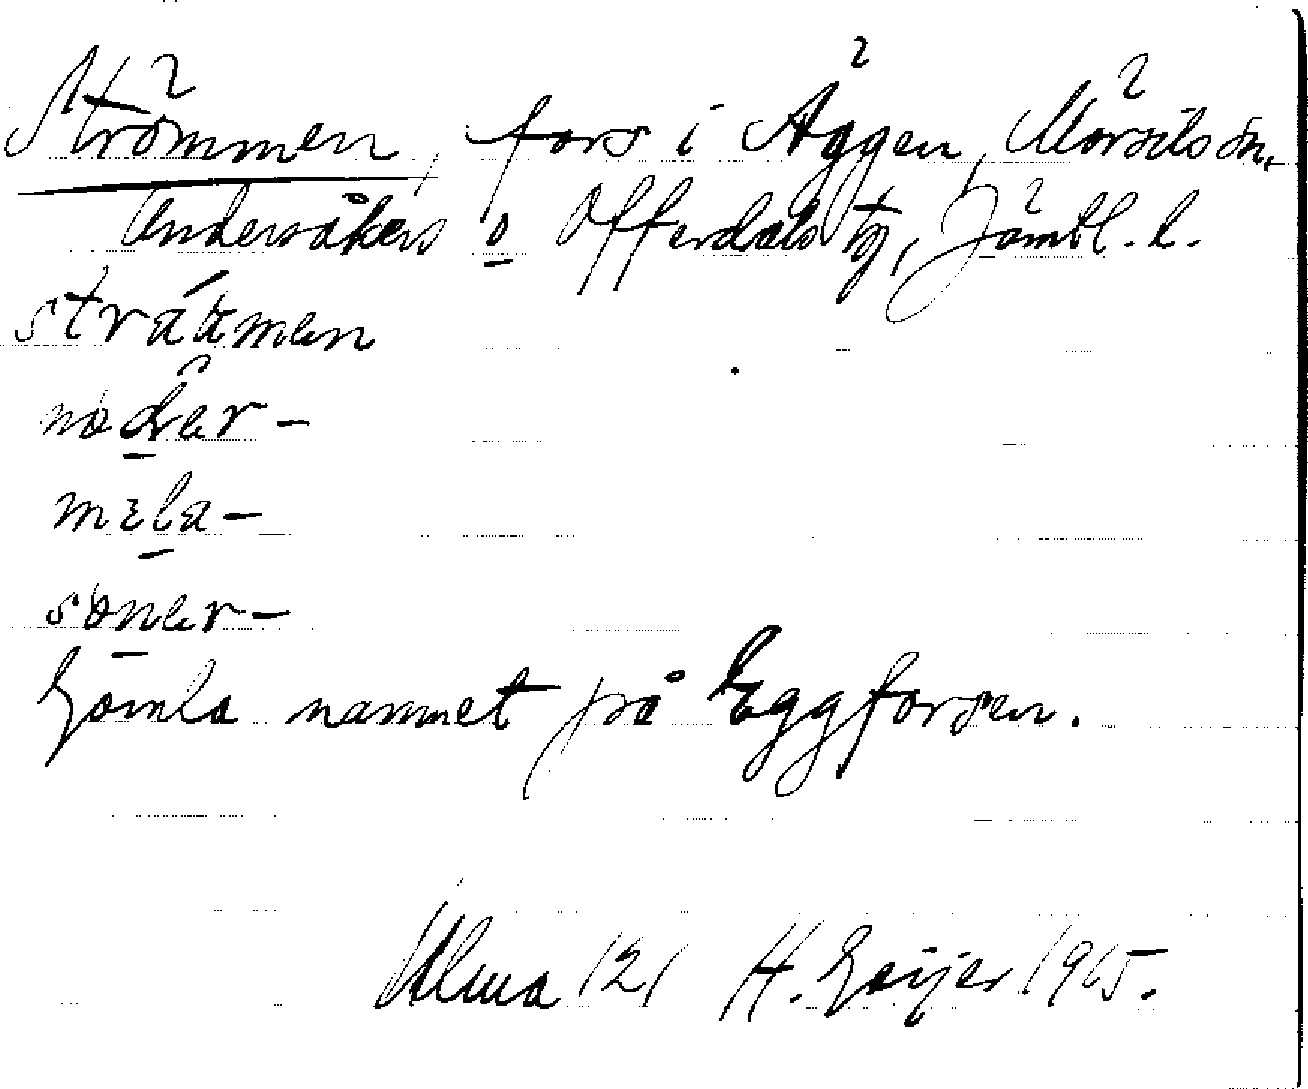 Strömmen, fors i Äggen, Mörsils sn,
Undersåkers o Offerdals tg, Jämtl. l.
sträämen
nøđer-
mela-
søner-
Gamla namnet på Eggforsen.
Ulma 121 H. Geijer 1915.